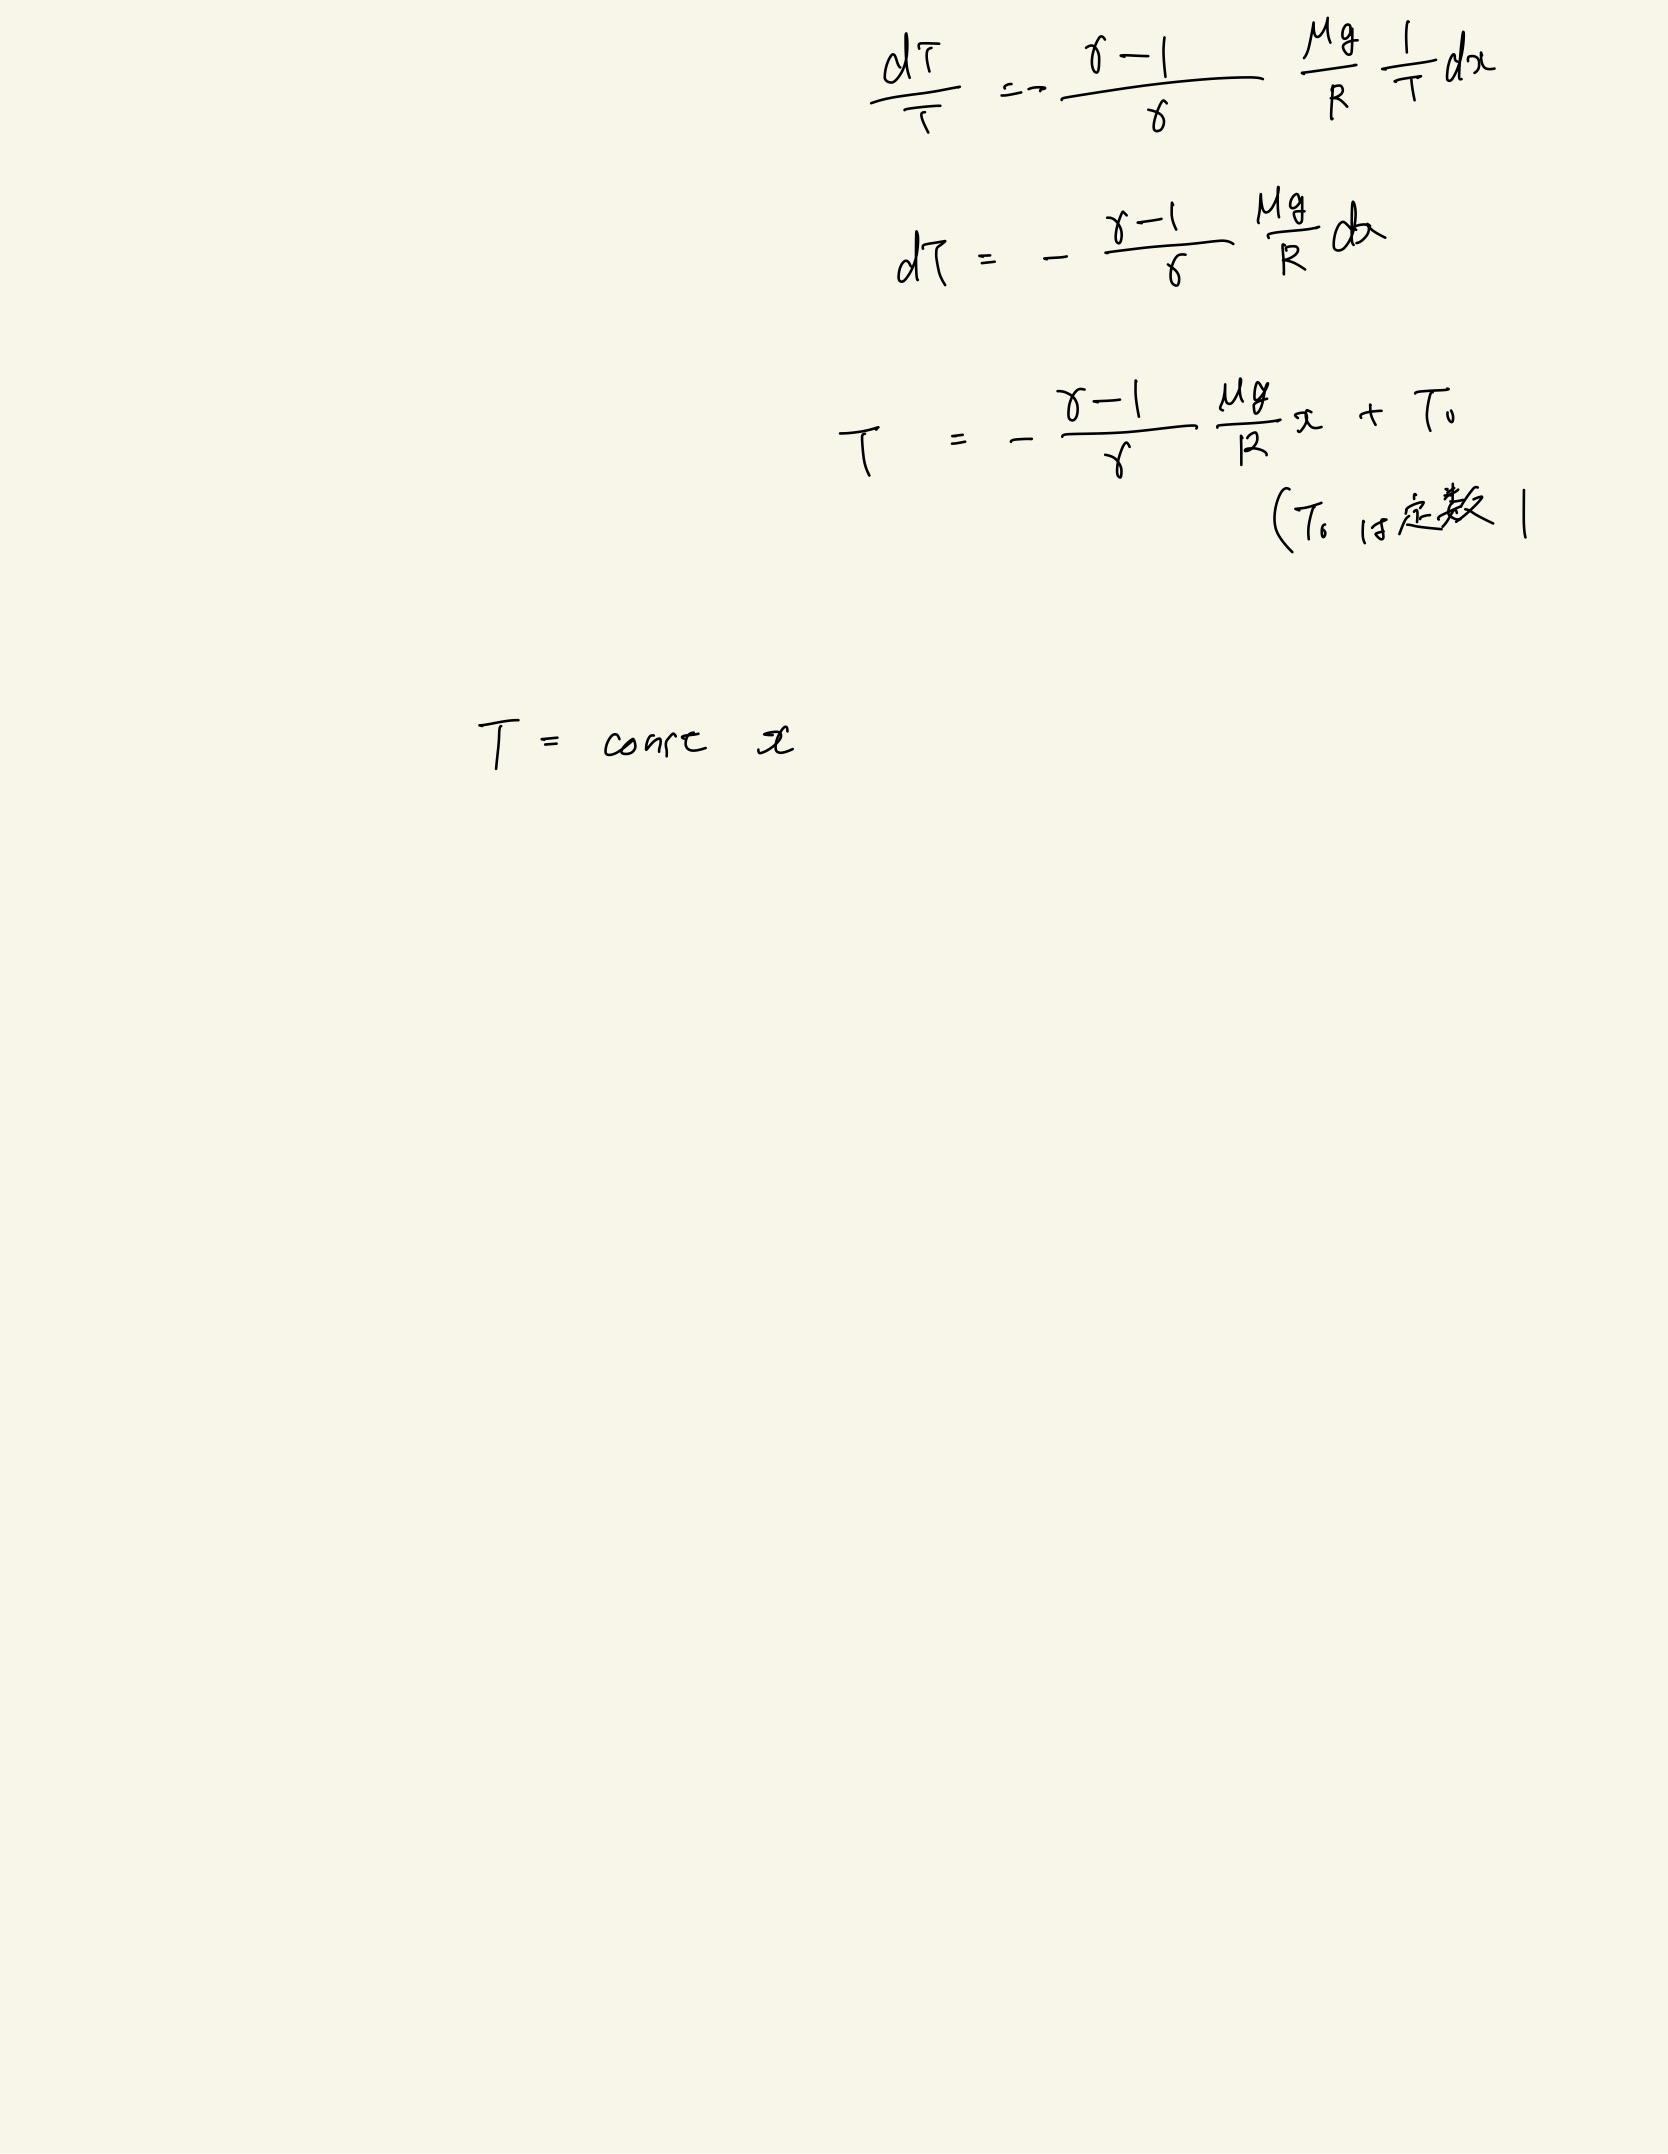 dT/T = - (γ-1)/γ μg/R 1/T dx
dT = - (γ-1)/γ μg/R dx
T = - (γ-1)/γ μg/R x + T₀
(T₀ は定数)
T = const x